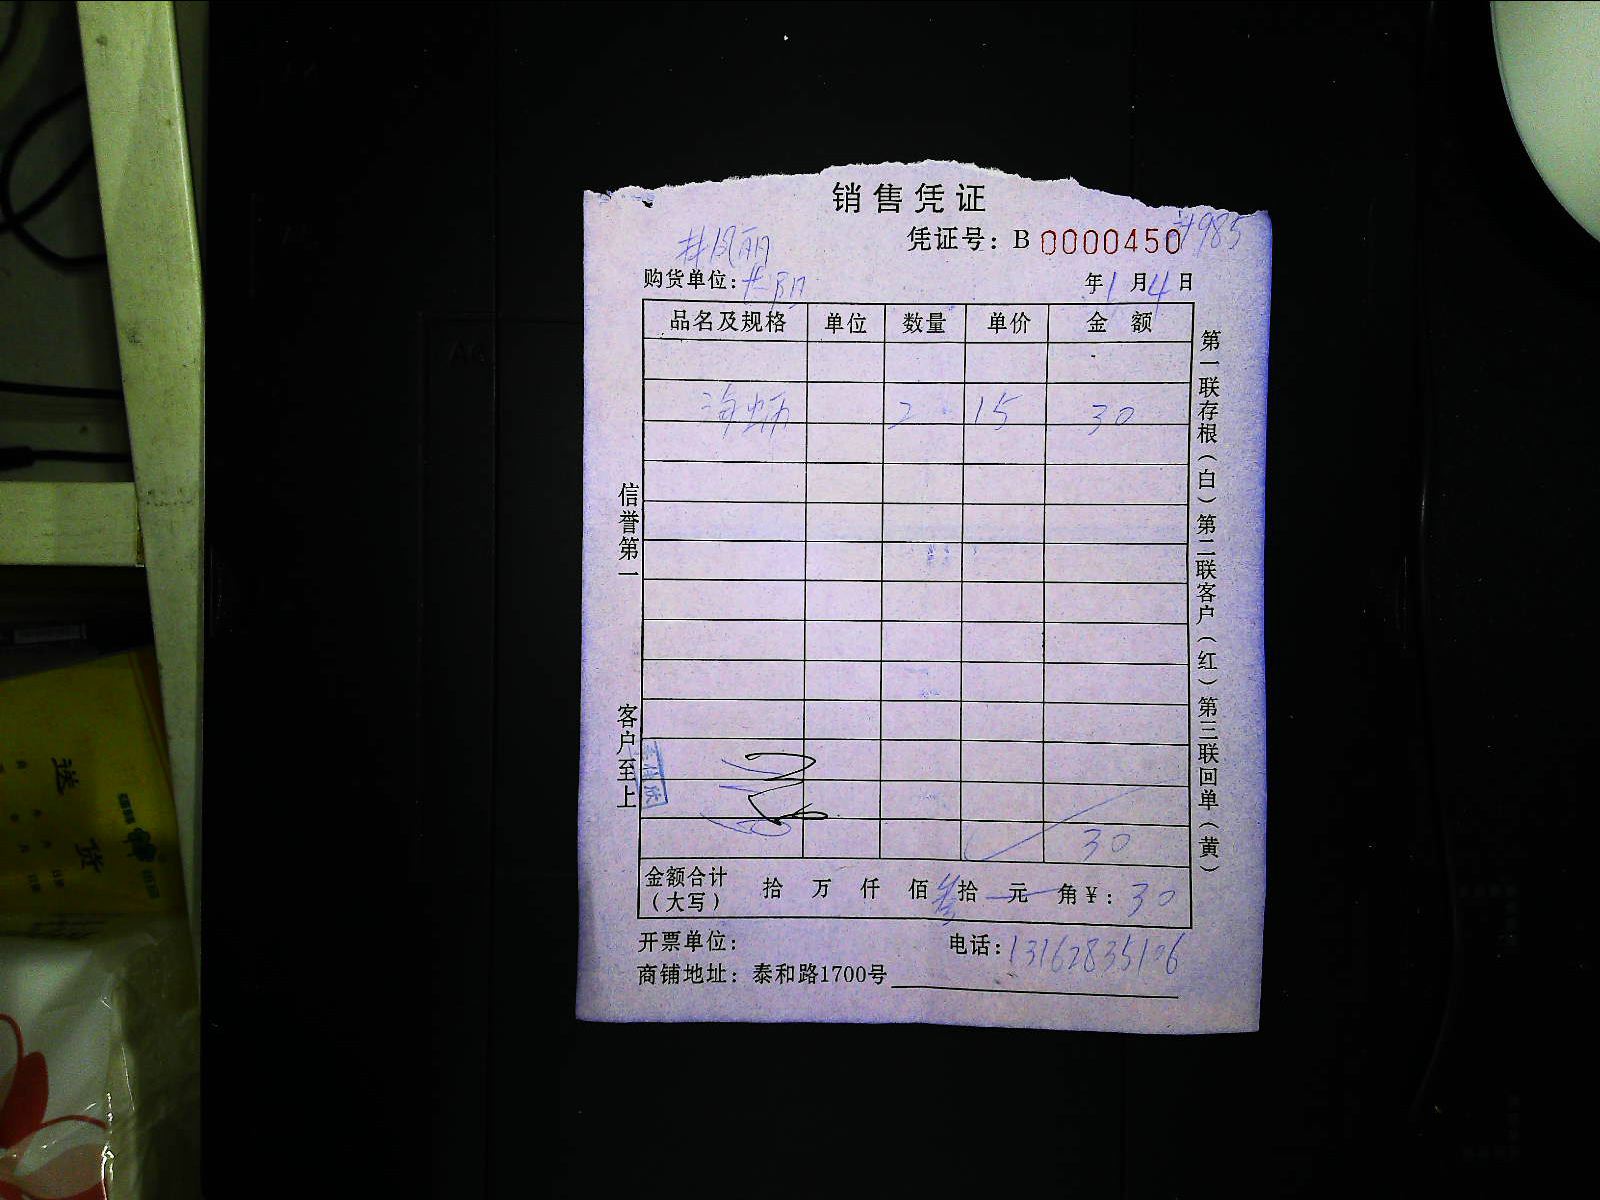 销售凭证
凭证号：B 0000450 #985
井凤丽
购货单位： 年1月4日
品名及规格 单位 数量 单价 金额
海蛎 2 15 30
30
金额合计（大写） 拾 万 仟 佰 叁拾 元 角 ¥：30
开票单位： 电话：13162835106
商铺地址：泰和路1700号
信誉第一 客户至上
第一联存根（白）第二联客户（红）第三联回单（黄）
送货